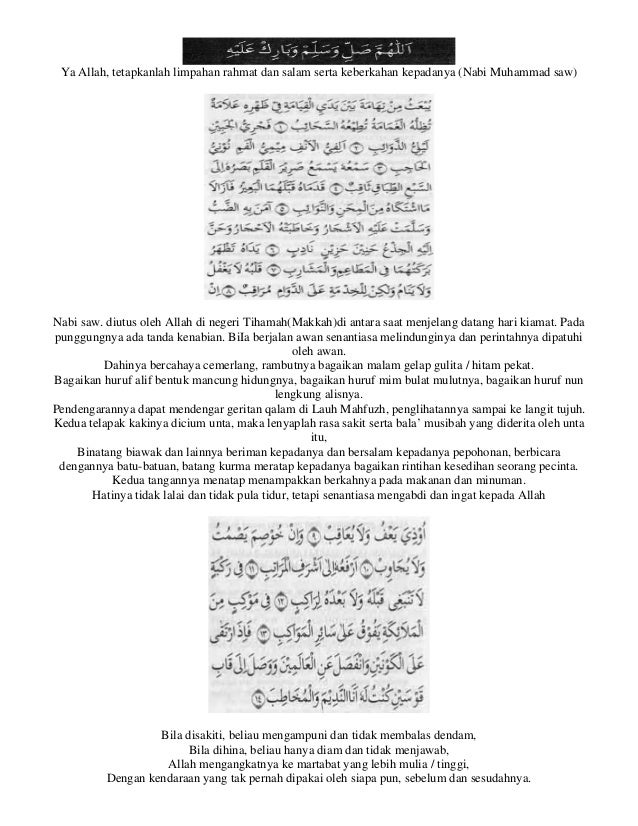 اَللّٰهُمَّ صَلِّ وَسَلِّمْ وَبَارِكْ عَلَيْهِ
Ya Allah, tetapkanlah limpahan rahmat dan salam serta keberkahan kepadanya (Nabi Muhammad saw)
يُبْعَثُ مِنْ تِهَامَةَ بَيْنَ يَدَيِ الْقِيَامَةِ فِيْ ظَهْرِهِ عَلَامَةٌ
تُظِلُّهُ الْغَمَامَةُ تُطِيْعُهُ السَّحَائِبُ ﴿١﴾ فَجْرِيُّ الْجَبِيْنِ
لَيْلِيُّ الذَّوَائِبِ ﴿٢﴾ اَلِفِيُّ الْاَنْفِ مِيْمِيُّ الْفَمِ نُوْنِيُّ
الْحَاجِبِ ﴿٣﴾ سَمْعُهُ يَسْمَعُ صَرِيْرَ الْقَلَمِ بَصَرُهُ اِلَى
السَّبْعِ الطِّبَاقِ ثَاقِبٌ ﴿٤﴾ قَدَمَاهُ قَبَّلَهُمَا الْبَعِيْرُ فَاَزَالَا
مَا اشْتَكَاهُ مِنَ الْمِحَنِ وَالنَّوَائِبِ ﴿٥﴾ آمَنَ بِهِ الضَّبُّ
وَسَلَّمَتْ عَلَيْهِ الْاَشْجَارُ وَخَاطَبَتْهُ الْاَحْجَارُ وَحَنَّ
اِلَيْهِ الْجِذْعُ حَنِيْنَ حَزِيْنٍ نَادِبٍ ﴿٦﴾ يَدَاهُ تَظْهَرُ
بَرَكَتُهُمَا فِي الْمَطَاعِمِ وَالْمَشَارِبِ ﴿٧﴾ قَلْبُهُ لَا يَغْفُلُ
وَلَا يَنَامُ وَلٰكِنْ لِلْخِدْمَةِ عَلَى الدَّوَامِ مُرَاقِبٌ ﴿٨﴾ اِنْ
Nabi saw. diutus oleh Allah di negeri Tihamah(Makkah)di antara saat menjelang datang hari kiamat. Pada
punggungnya ada tanda kenabian. Bila berjalan awan senantiasa melindunginya dan perintahnya dipatuhi
oleh awan.
Dahinya bercahaya cemerlang, rambutnya bagaikan malam gelap gulita / hitam pekat.
Bagaikan huruf alif bentuk mancung hidungnya, bagaikan huruf mim bulat mulutnya, bagaikan huruf nun
lengkung alisnya.
Pendengarannya dapat mendengar geritan qalam di Lauh Mahfuzh, penglihatannya sampai ke langit tujuh.
Kedua telapak kakinya dicium unta, maka lenyaplah rasa sakit serta bala' musibah yang diderita oleh unta
itu,
Binatang biawak dan lainnya beriman kepadanya dan bersalam kepadanya pepohonan, berbicara
dengannya batu-batuan, batang kurma meratap kepadanya bagaikan rintihan kesedihan seorang pecinta.
Kedua tangannya menatap menampakkan berkahnya pada makanan dan minuman.
Hatinya tidak lalai dan tidak pula tidur, tetapi senantiasa mengabdi dan ingat kepada Allah
اُوْذِيَ يَعْفُ وَلَا يُعَاقِبْ ﴿٩﴾ وَاِنْ خُوْصِمَ يَصْمُتْ
وَلَا يُجَاوِبْ ﴿١٠﴾ اَرْفَعُهُ اِلَى اَشْرَفِ الْمَرَاتِبِ ﴿١١﴾ فِيْ رَكْبَةٍ
لَا تَنْبَغِيْ قَبْلَهُ وَلَا بَعْدَهُ لِرَاكِبٍ ﴿١٢﴾ فِيْ مَوْكِبٍ مِنَ
الْمَلَائِكَةِ يَفُوْقُ عَلَى سَائِرِ الْمَوَاكِبِ ﴿١٣﴾ فَاِذَا ارْتَقَى
عَلَى الْكَوْنَيْنِ وَانْفَصَلَ عَنِ الْعَالَمِيْنَ وَوَصَلَ اِلَى قَابِ
قَوْسَيْنِ كُنْتُ لَهُ اَنَا النَّدِيْمَ وَالْمُخَاطِبَ ﴿١٤﴾
Bila disakiti, beliau mengampuni dan tidak membalas dendam,
Bila dihina, beliau hanya diam dan tidak menjawab,
Allah mengangkatnya ke martabat yang lebih mulia / tinggi,
Dengan kendaraan yang tak pernah dipakai oleh siapa pun, sebelum dan sesudahnya.